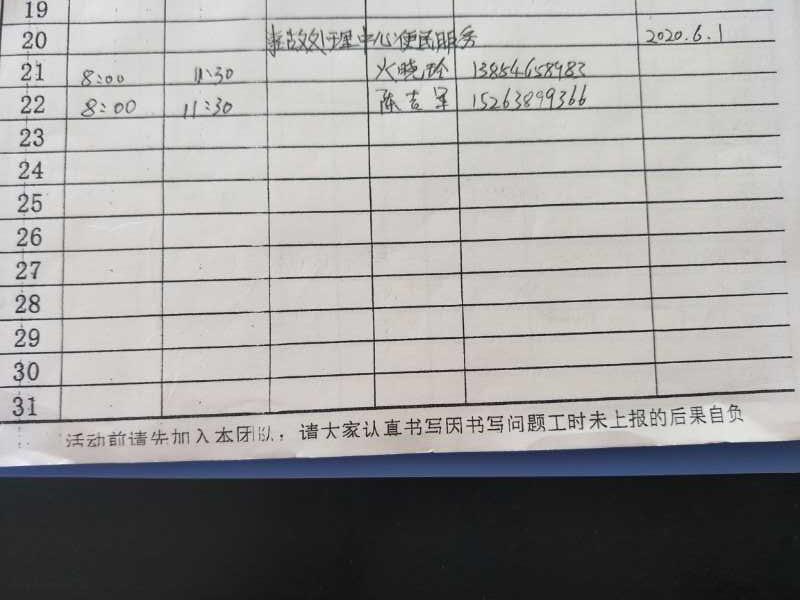 19
20 事故处理中心便民服务 2020.6.1
21 8:00 11:30 火晓玲 13854658983
22 8:00 11:30 陈吉军 15263899366
23
24
25
26
27
28
29
30
31
活动前请先加入本团队，请大家认真书写因书写问题工时未上报的后果自负